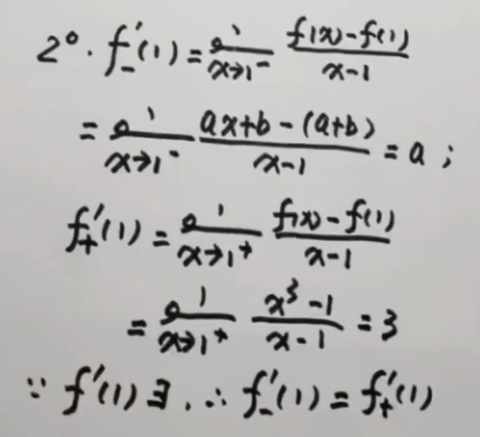 2°. f₋'(1) = lim_{x→1⁻} (f(x)-f(1))/(x-1)
= lim_{x→1⁻} (ax+b-(a+b))/(x-1) = a ;
f₊'(1) = lim_{x→1⁺} (f(x)-f(1))/(x-1)
= lim_{x→1⁺} (x³-1)/(x-1) = 3
∵ f'(1) ∃ . ∴ f₋'(1) = f₊'(1)